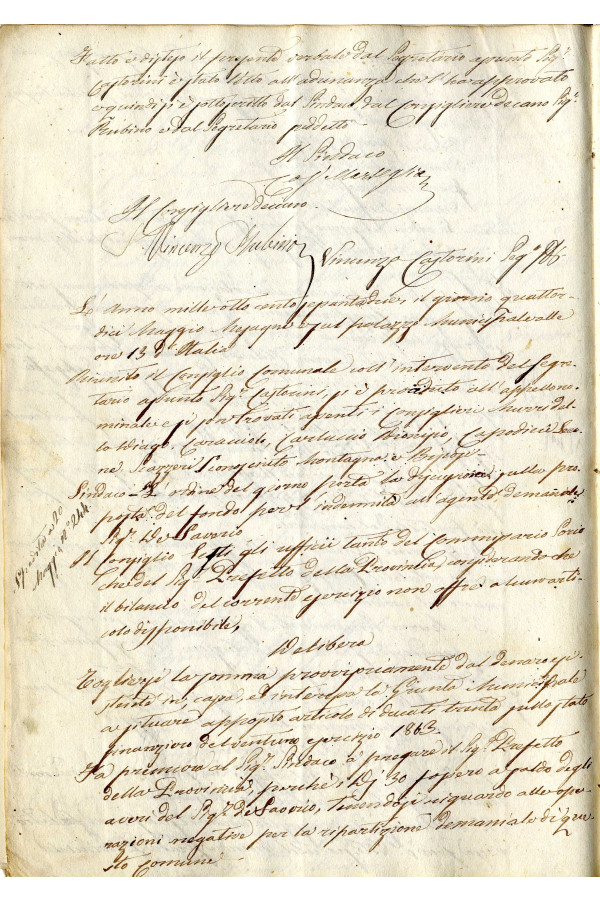 Fatto e disteso il presente verbale dal Segretario assunto Sig.r
Castorini è stato letto all'adunanza che l'ha approvato
e quindi si è sottoscritto dal Sindaco dal Consigliere decano Sig.r
Rubino e dal Segretario suddetto
Il Sindaco
Il Consigliere decano
Vincenzo Rubino
Vincenzo Castorini Seg.o
L'Anno mille otto cento sessantadue, il giorno quattor-
dici Maggio Mesagne e sul palazzo Municipale alle
ore 13 d'Italia
Riunito il Consiglio Comunale coll'intervento del Segre-
tario assunto Sig.r Castorini si è proceduto all'appello no-
minale e si son trovati assenti i Consiglieri
Caracciolo, Carluccio Dionisio, Capodieci
Scazzeri Longevito Montagna e
Sindaco - L'ordine del giorno porta la discussione sulla pro-
posta del fondo per indennità all'agente demaniale
Sig.r De Saverio
Il Consiglio Letti gli ufficii tanto del Commissario
che del Sig.r Prefetto della Provincia, considerando che
il bilancio del corrente esercizio non offre alcun arti-
colo disponibile,
Delibera
Togliersi la somma provvisoriamente dal denaro esi-
stente in cassa, ed interessa la Giunta Municipale
a situare apposito articolo di ducati trenta sullo stato
finanziero del venturo esercizio 1863.
Fa premura al Sig.r Sindaco a pregare il Sig.r Prefetto
della Provincia, perchè i D.i 30 fossero a saldo degli
averi del Sig.r de Saverio, tenendosi riguardo alle ope-
razioni negative per la ripartizione demaniale di que-
sto Comune
20
Maggio n.o 244